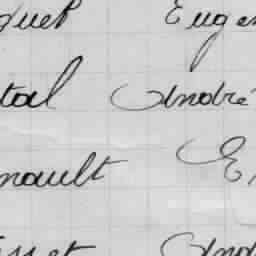 quet Eugen
tal André
nault E
sset And